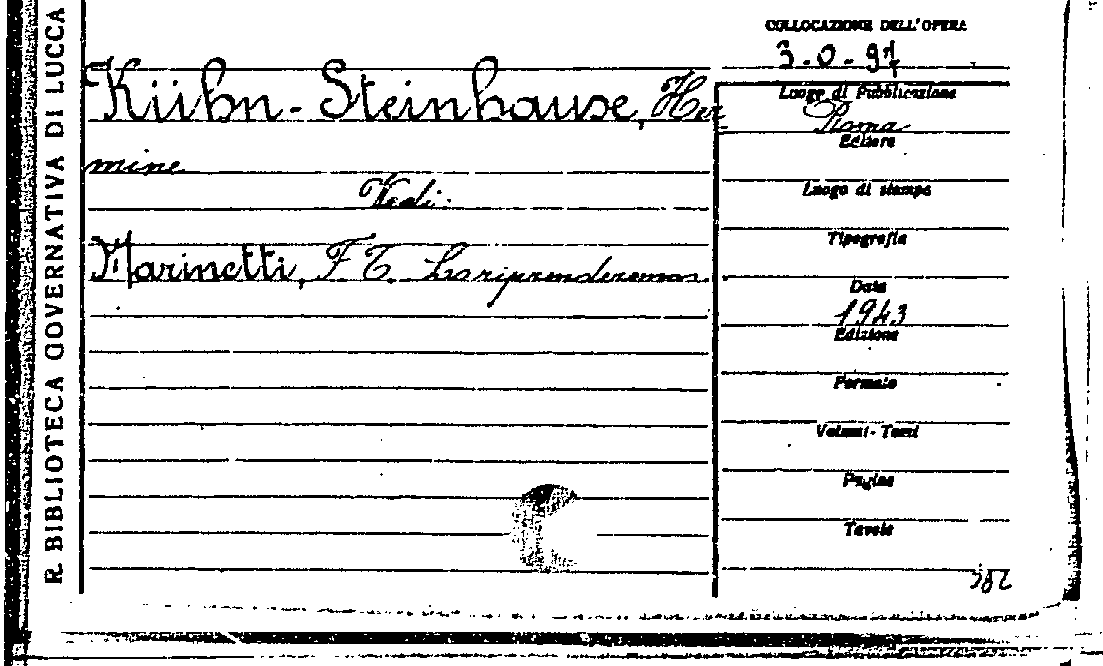 R. BIBLIOTECA GOVERNATIVA DI LUCCA
COLLOCAZIONE DELL'OPERA
3.0.97
Kühn-Steinhause, Her-
mine
Vedi:
Marinetti, F. T. La riprenderemo.
Luogo di Pubblicazione
Roma
Editore
Luogo di stampa
Tipografia
Data
1943
Edizione
Formato
Volumi - Tomi
Pagine
Tavole